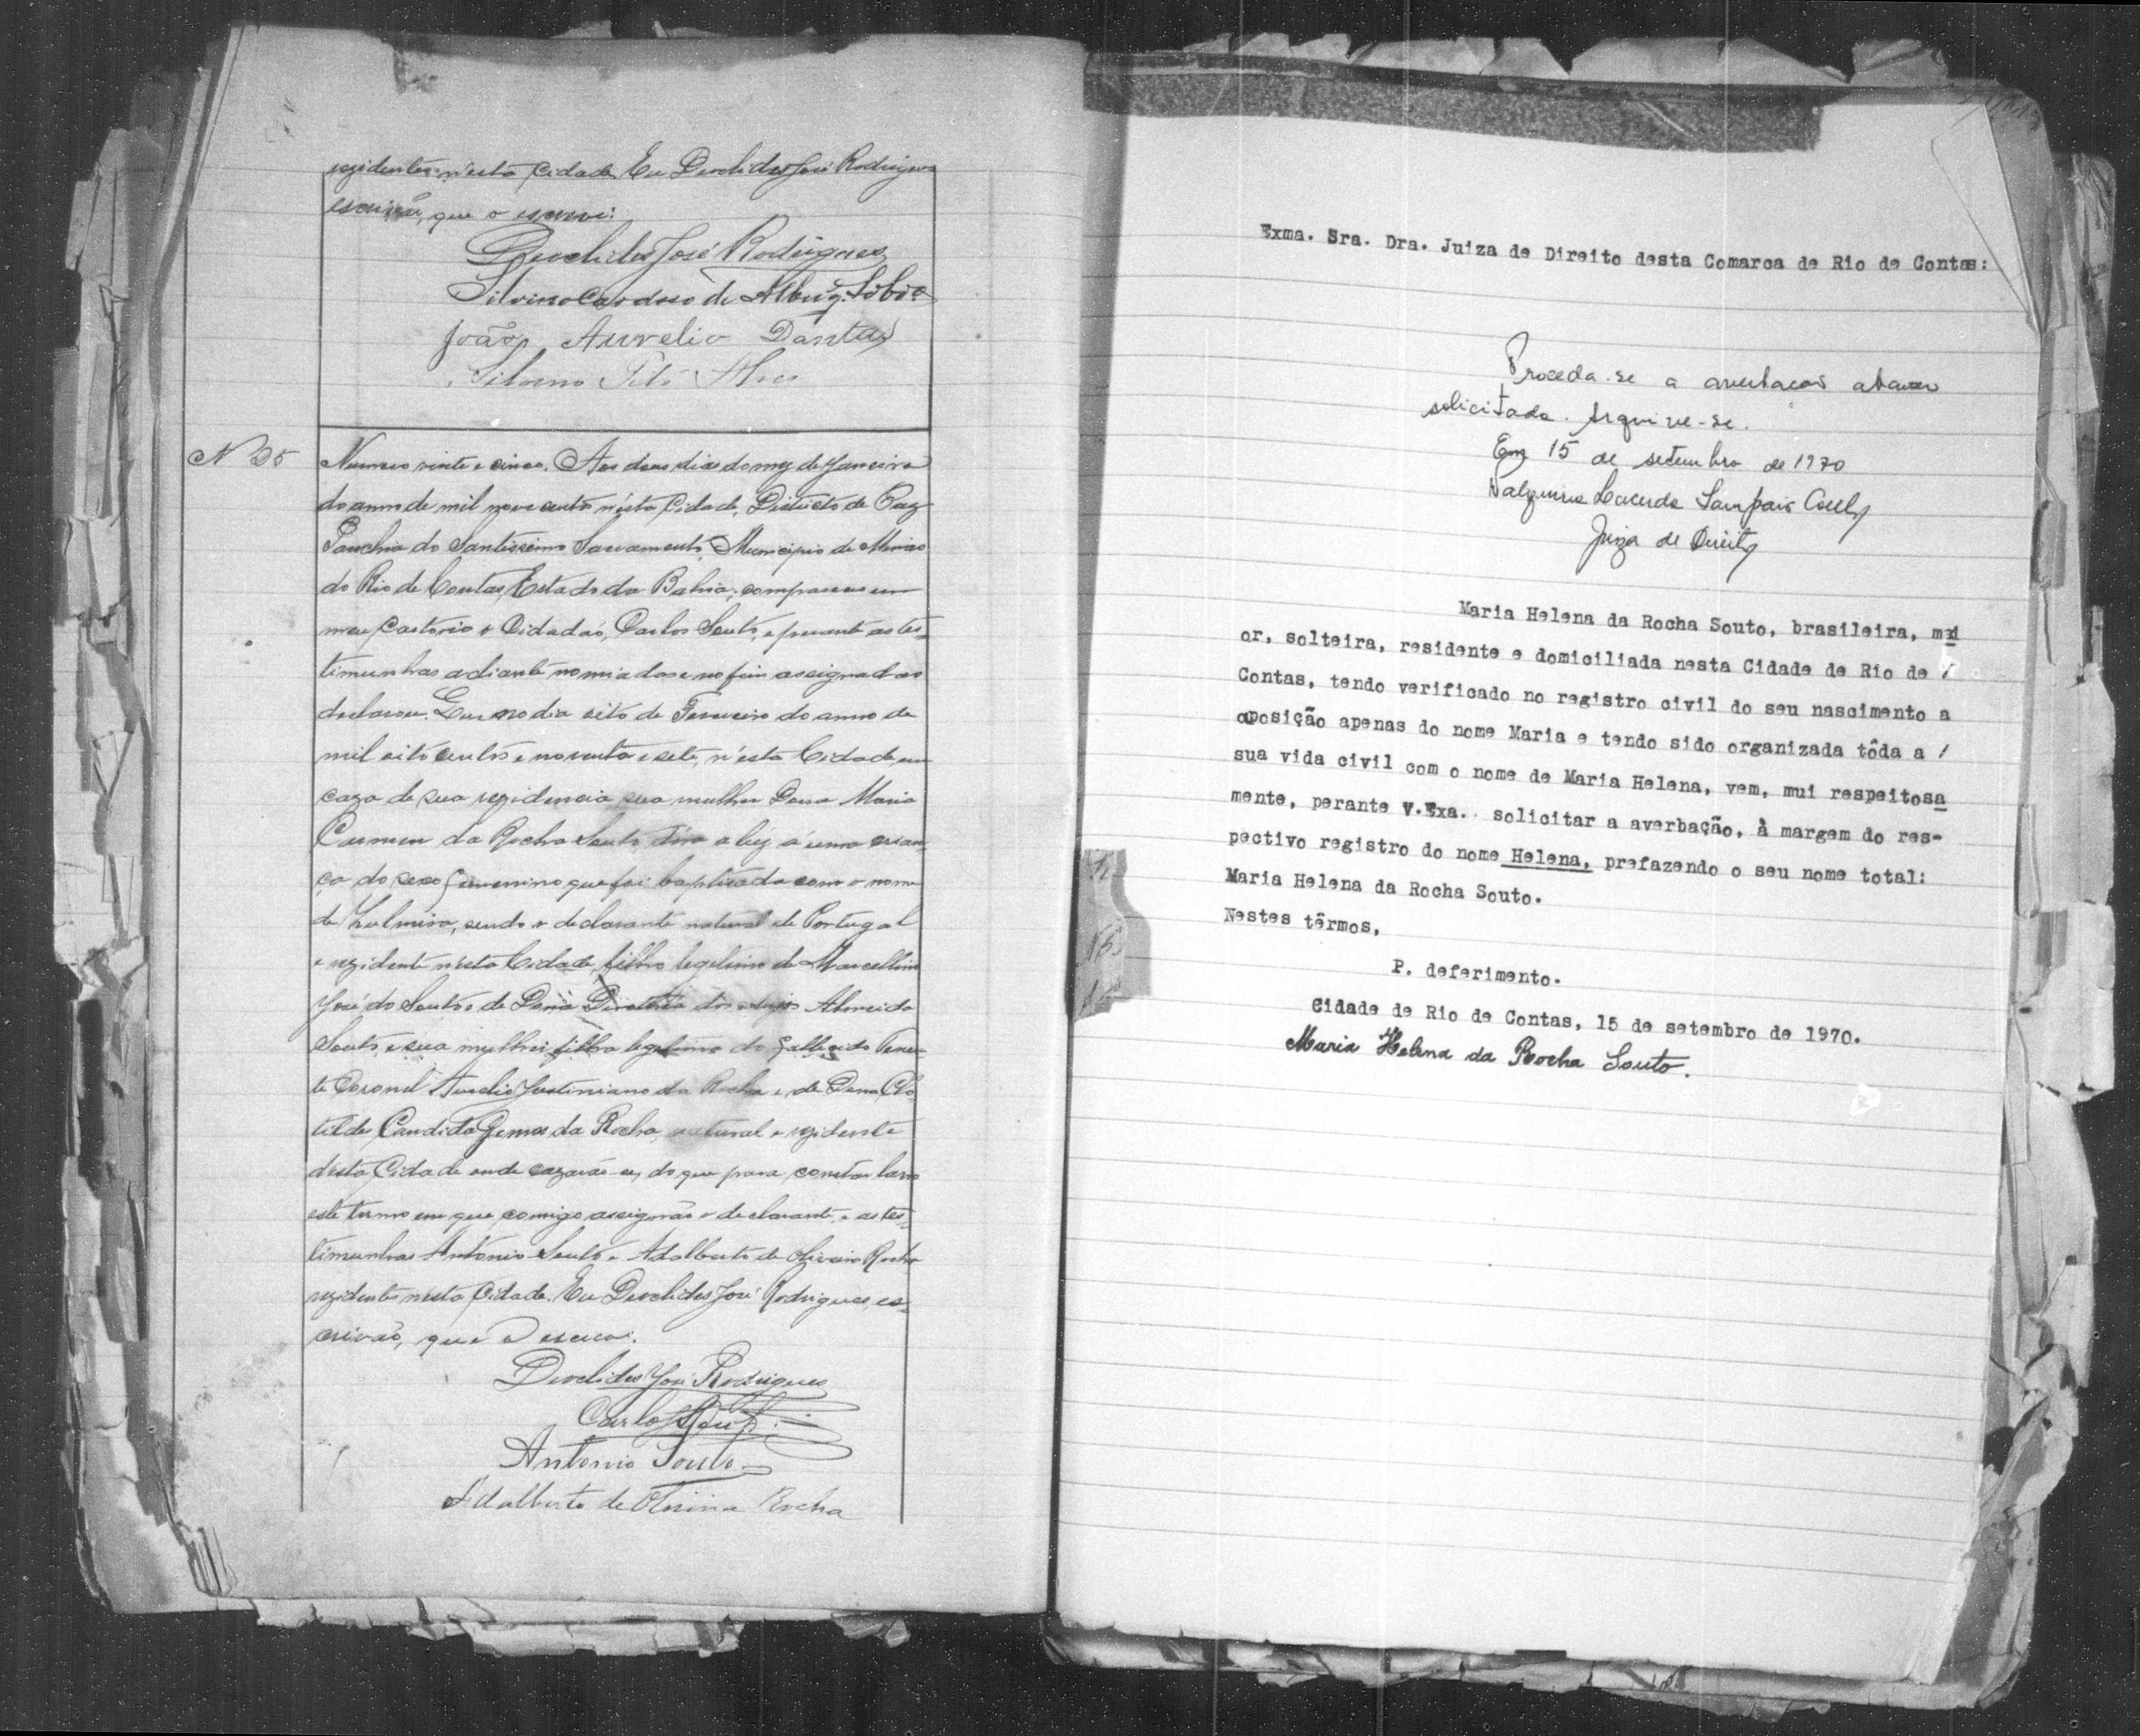 rezidentes n'esta Cidade. Eu Deoclides José Rodrigues
escrivão, que o escrevi.
Deoclides José Rodrigues
Silvino Cardoso de Albuq.
João Aurelio Dantas
Silvino
N 25
Numero vinte e cinco. Aos dous dias do mez de Janeiro
do anno de mil nove centos n'esta Cidade, Districto de Paz
Parochia do Santissimo Sacramento, Municipio de Minas
do Rio de Contas, Estado da Bahia, compareceu em
meu Cartorio o Cidadão, Carlos Souto, e perante as tes-
timunhas adiante nomiadas e no fim assignadas
declarou. Que no dia oito de Fevereiro do anno de
mil oito centos e noventa e sete, n'esta Cidade, em
caza de sua rezidencia sua mulher Dona Maria
Carmen da Rocha Souto dera a luz á uma crian-
ça do sexo femenino que foi baptisada com o nome
de Zulmira, sendo o declarante natural de Portugal
e rezidente n'esta Cidade, filho legitimo de Marcellino
José do Souto e de Dona dos Almeida
Souto, e sua mulher filha legitima do fallecido Tenen-
te Coronel Aurelio Justiniano da Rocha e de Dona Clo-
tildes Candida Gomes da Rocha, natural e rezidente
desta Cidade onde cazarão-se, do que para constar lavro
este termo em que comigo assignão o declarante e as tes-
timunhas Antonio Souto e Adalberto de Oliveira Rocha
rezidentes nesta Cidade. Eu Deoclides José Rodrigues, es-
crivão, que o escrevi.
Deoclides José Rodrigues
Carlos Souto
Antonio Souto
Adalberto de Oliveira Rocha
Exma. Sra. Dra. Juiza de Direito desta Comarca de Rio de Contas:
Proceda-se a averbação abaixo
solicitada. Arquive-se.
Em 15 de setembro de 1970
Valquiria Lacerda Sampaio Coelho
Juiza de Direito
Maria Helena da Rocha Souto, brasileira, mai
or, solteira, residente e domiciliada nesta Cidade de Rio de /
Contas, tendo verificado no registro civil do seu nascimento a
aposição apenas do nome Maria e tendo sido organizada tôda a /
sua vida civil com o nome de Maria Helena, vem, mui respeitosa
mente, perante V.Exa. solicitar a averbação, à margem do res-
pectivo registro do nome Helena, prefazendo o seu nome total:
Maria Helena da Rocha Souto.
Nestes têrmos,
P. deferimento.
Cidade de Rio de Contas, 15 de setembro de 1970.
Maria Helena da Rocha Souto.